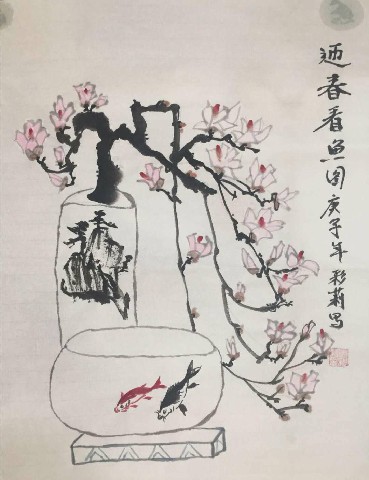 迎春看鱼图庚子年彩莉写